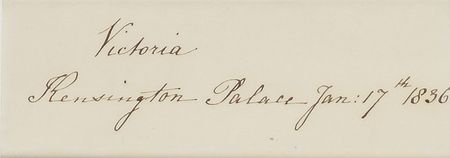 Victoria
Kensington Palace Jan: 17th 1836